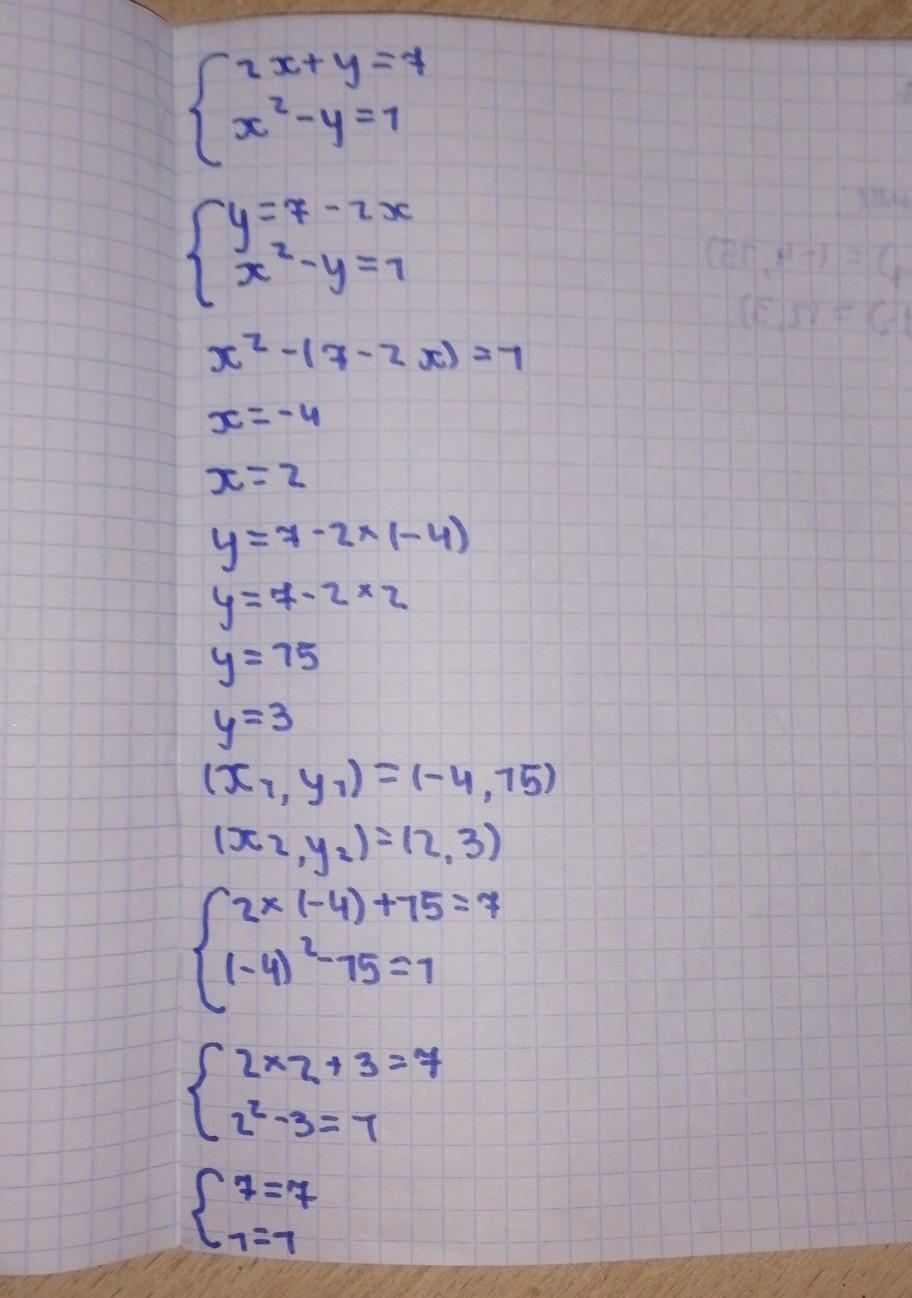 2x+y=7
x²-y=1
y=7-2x
x²-y=1
x²-(7-2x)=1
x=-4
x=2
y=7-2×(-4)
y=7-2×2
y=15
y=3
(x₁,y₁)=(-4,15)
(x₂,y₂)=(2,3)
2×(-4)+15=7
(-4)²-15=1
2×2+3=7
2²-3=1
7=7
1=1